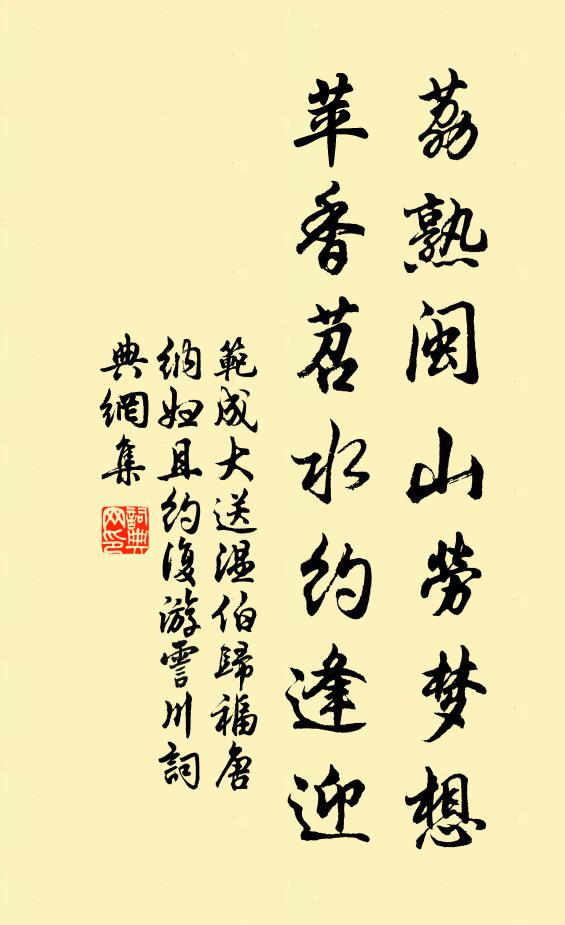 荔熟闽山劳梦想
苹香苕水约逢迎
範成大送温伯歸福唐
纳妇且约復游霅川詞
典網集
詞典网印